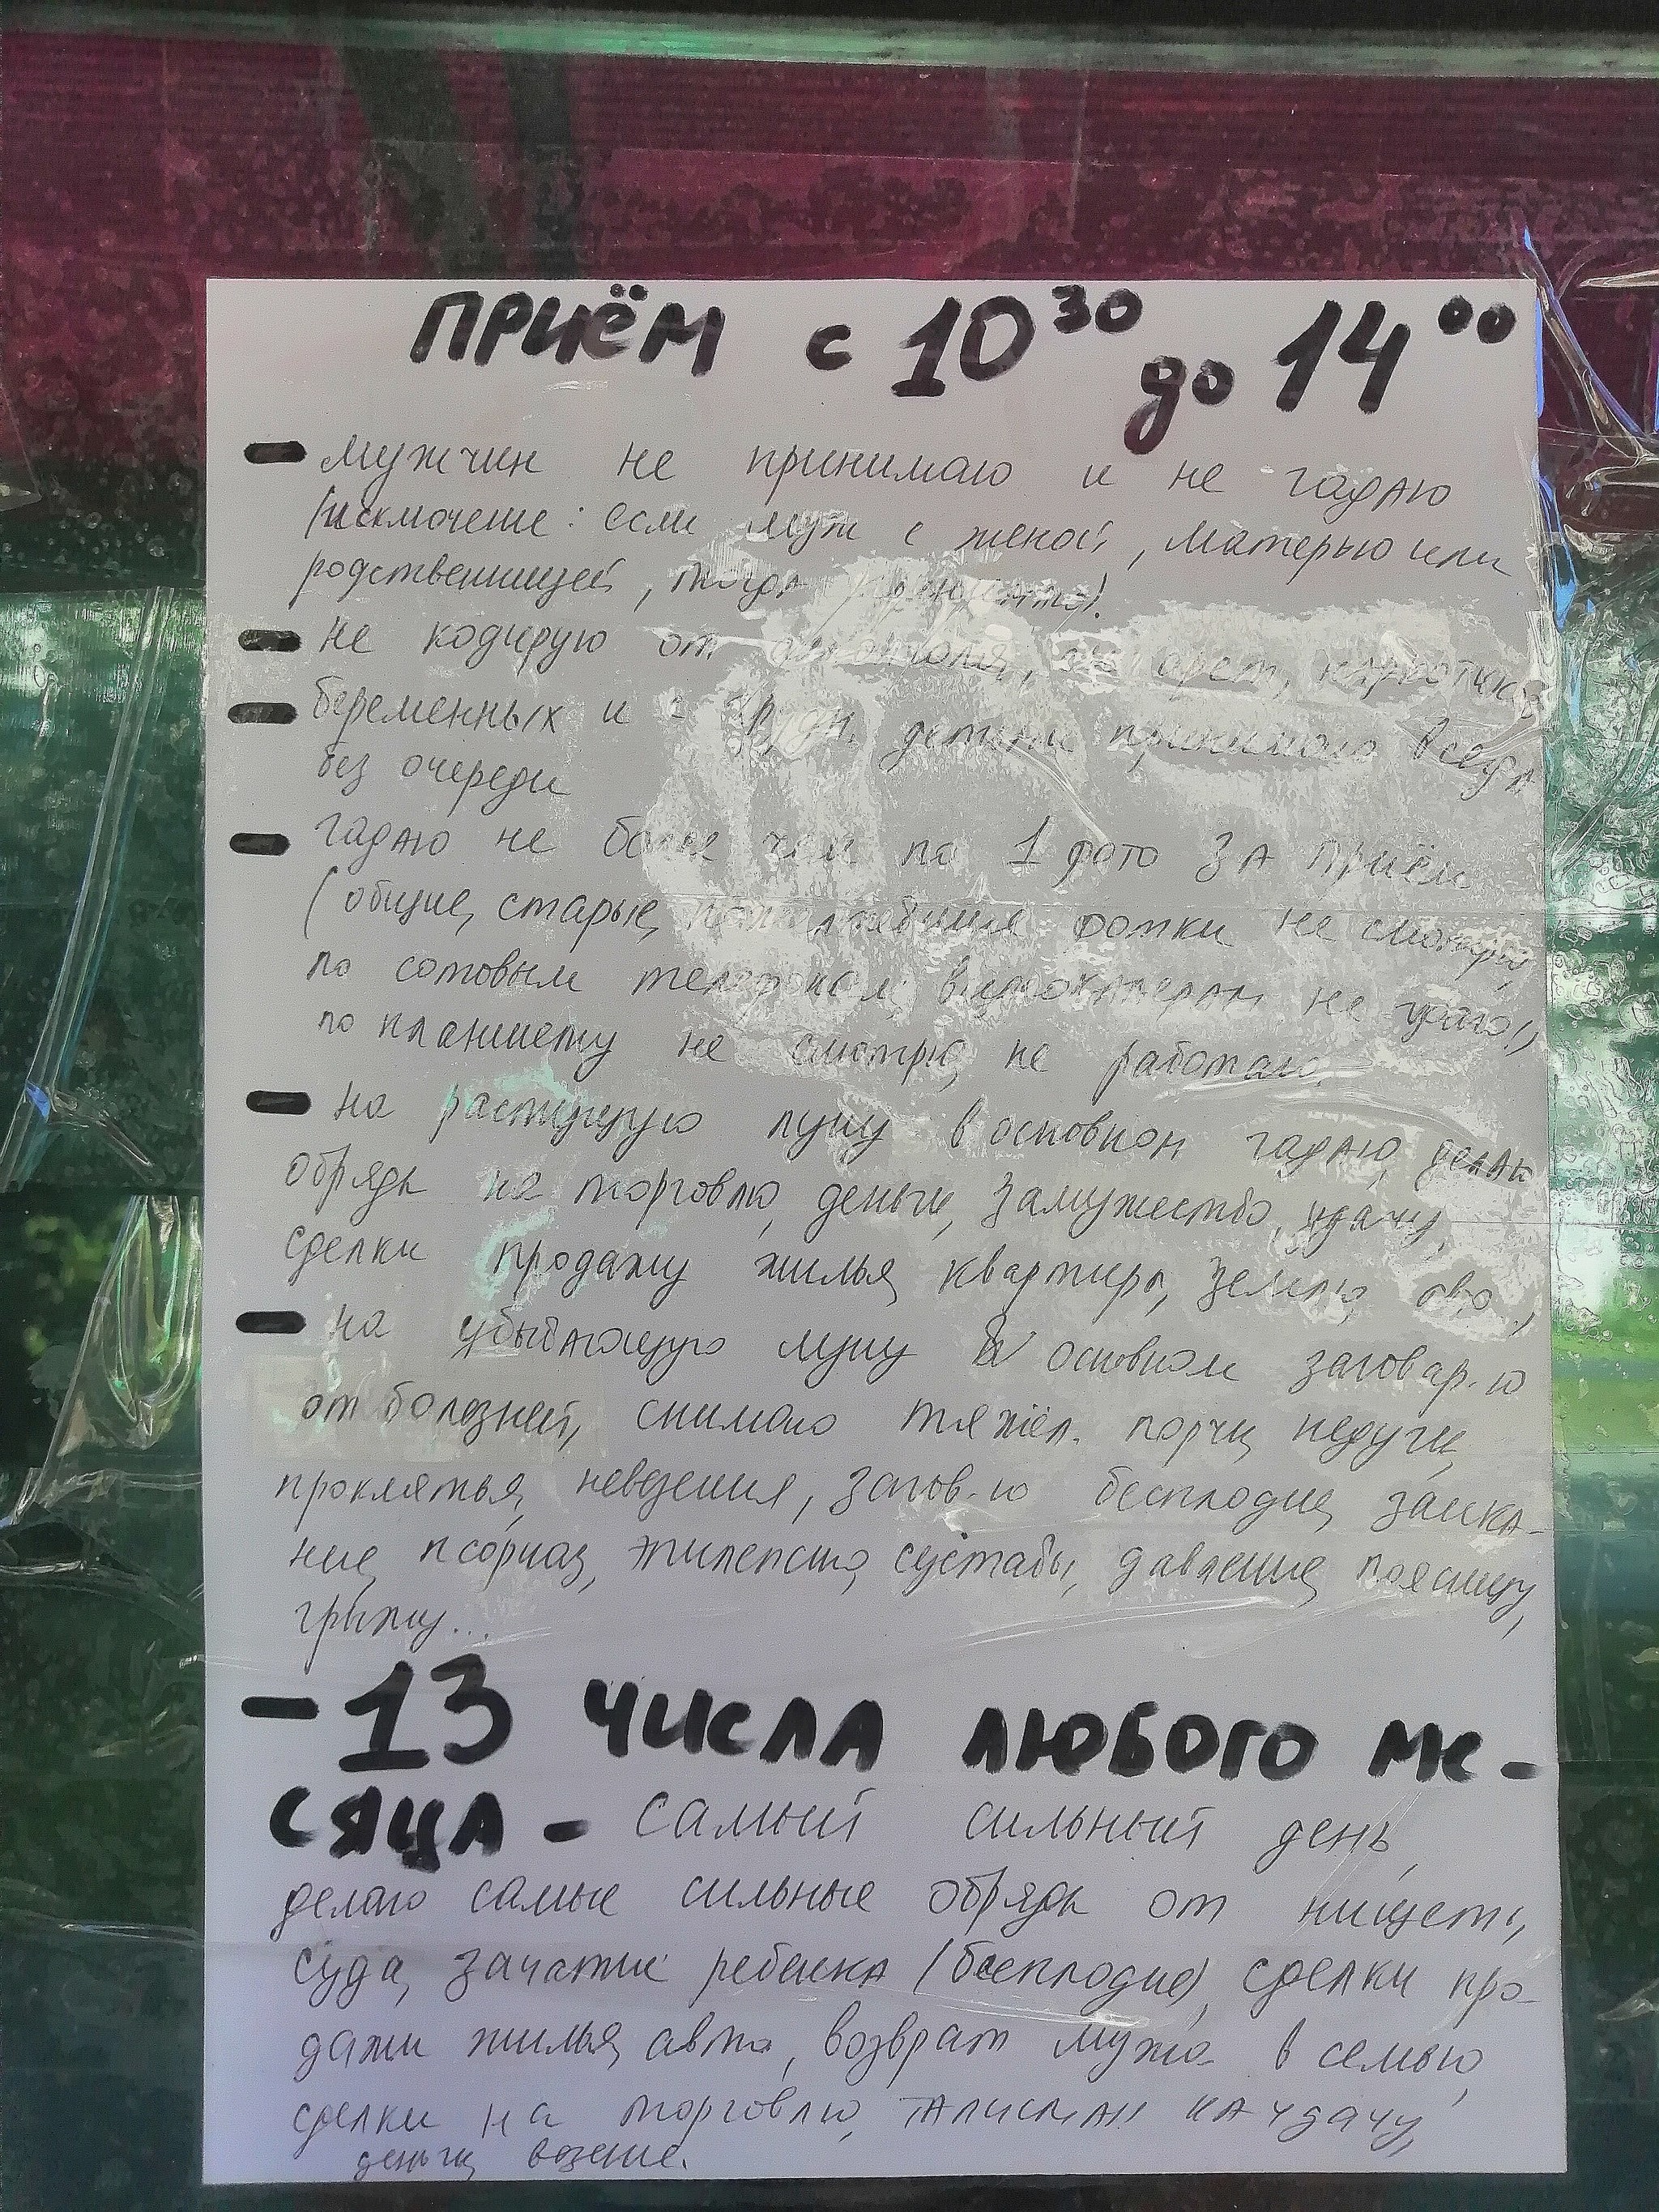 ПРИЁМ с 10 30 до 14 00
- мужчин не принимаю и не гадаю
(исключение: если муж с женой, матерью или
родственницей, тогда
- не кодирую от алкоголя, сигарет, наркотиков
- беременных и с грудн. детьми принимаю всегда
без очереди
- гадаю не более чем по 1 фото за приём
(общие, старые, пожелтевшие фотки не смотрю,
по сотовым телефонам, видеокамерам не гадаю!,
по планшету не смотрю, не работаю.
- на растущую луну в основном гадаю, делаю
обряды на торговлю, деньги, замужество, удачу,
сделки продажу жилья, квартиры, землю, авто,
- на убывающую луну в основном заговар-ю
от болезней, снимаю тяжёл. порчи, недуги,
проклятья, невезения, загов-ю бесплодие, заика-
ние, псориаз, эпилепсию, суставы, давление, поясницу,
грыжу...
- 13 ЧИСЛА ЛЮБОГО МЕ-
СЯЦА - самый сильный день,
делаю самые сильные обряды от нищеты,
суда, зачатие ребенка (бесплодие), сделки про-
дажи жилья, авто, возврат мужа в семью,
сделки на торговлю, талисман на удачу,
деньги, везение.